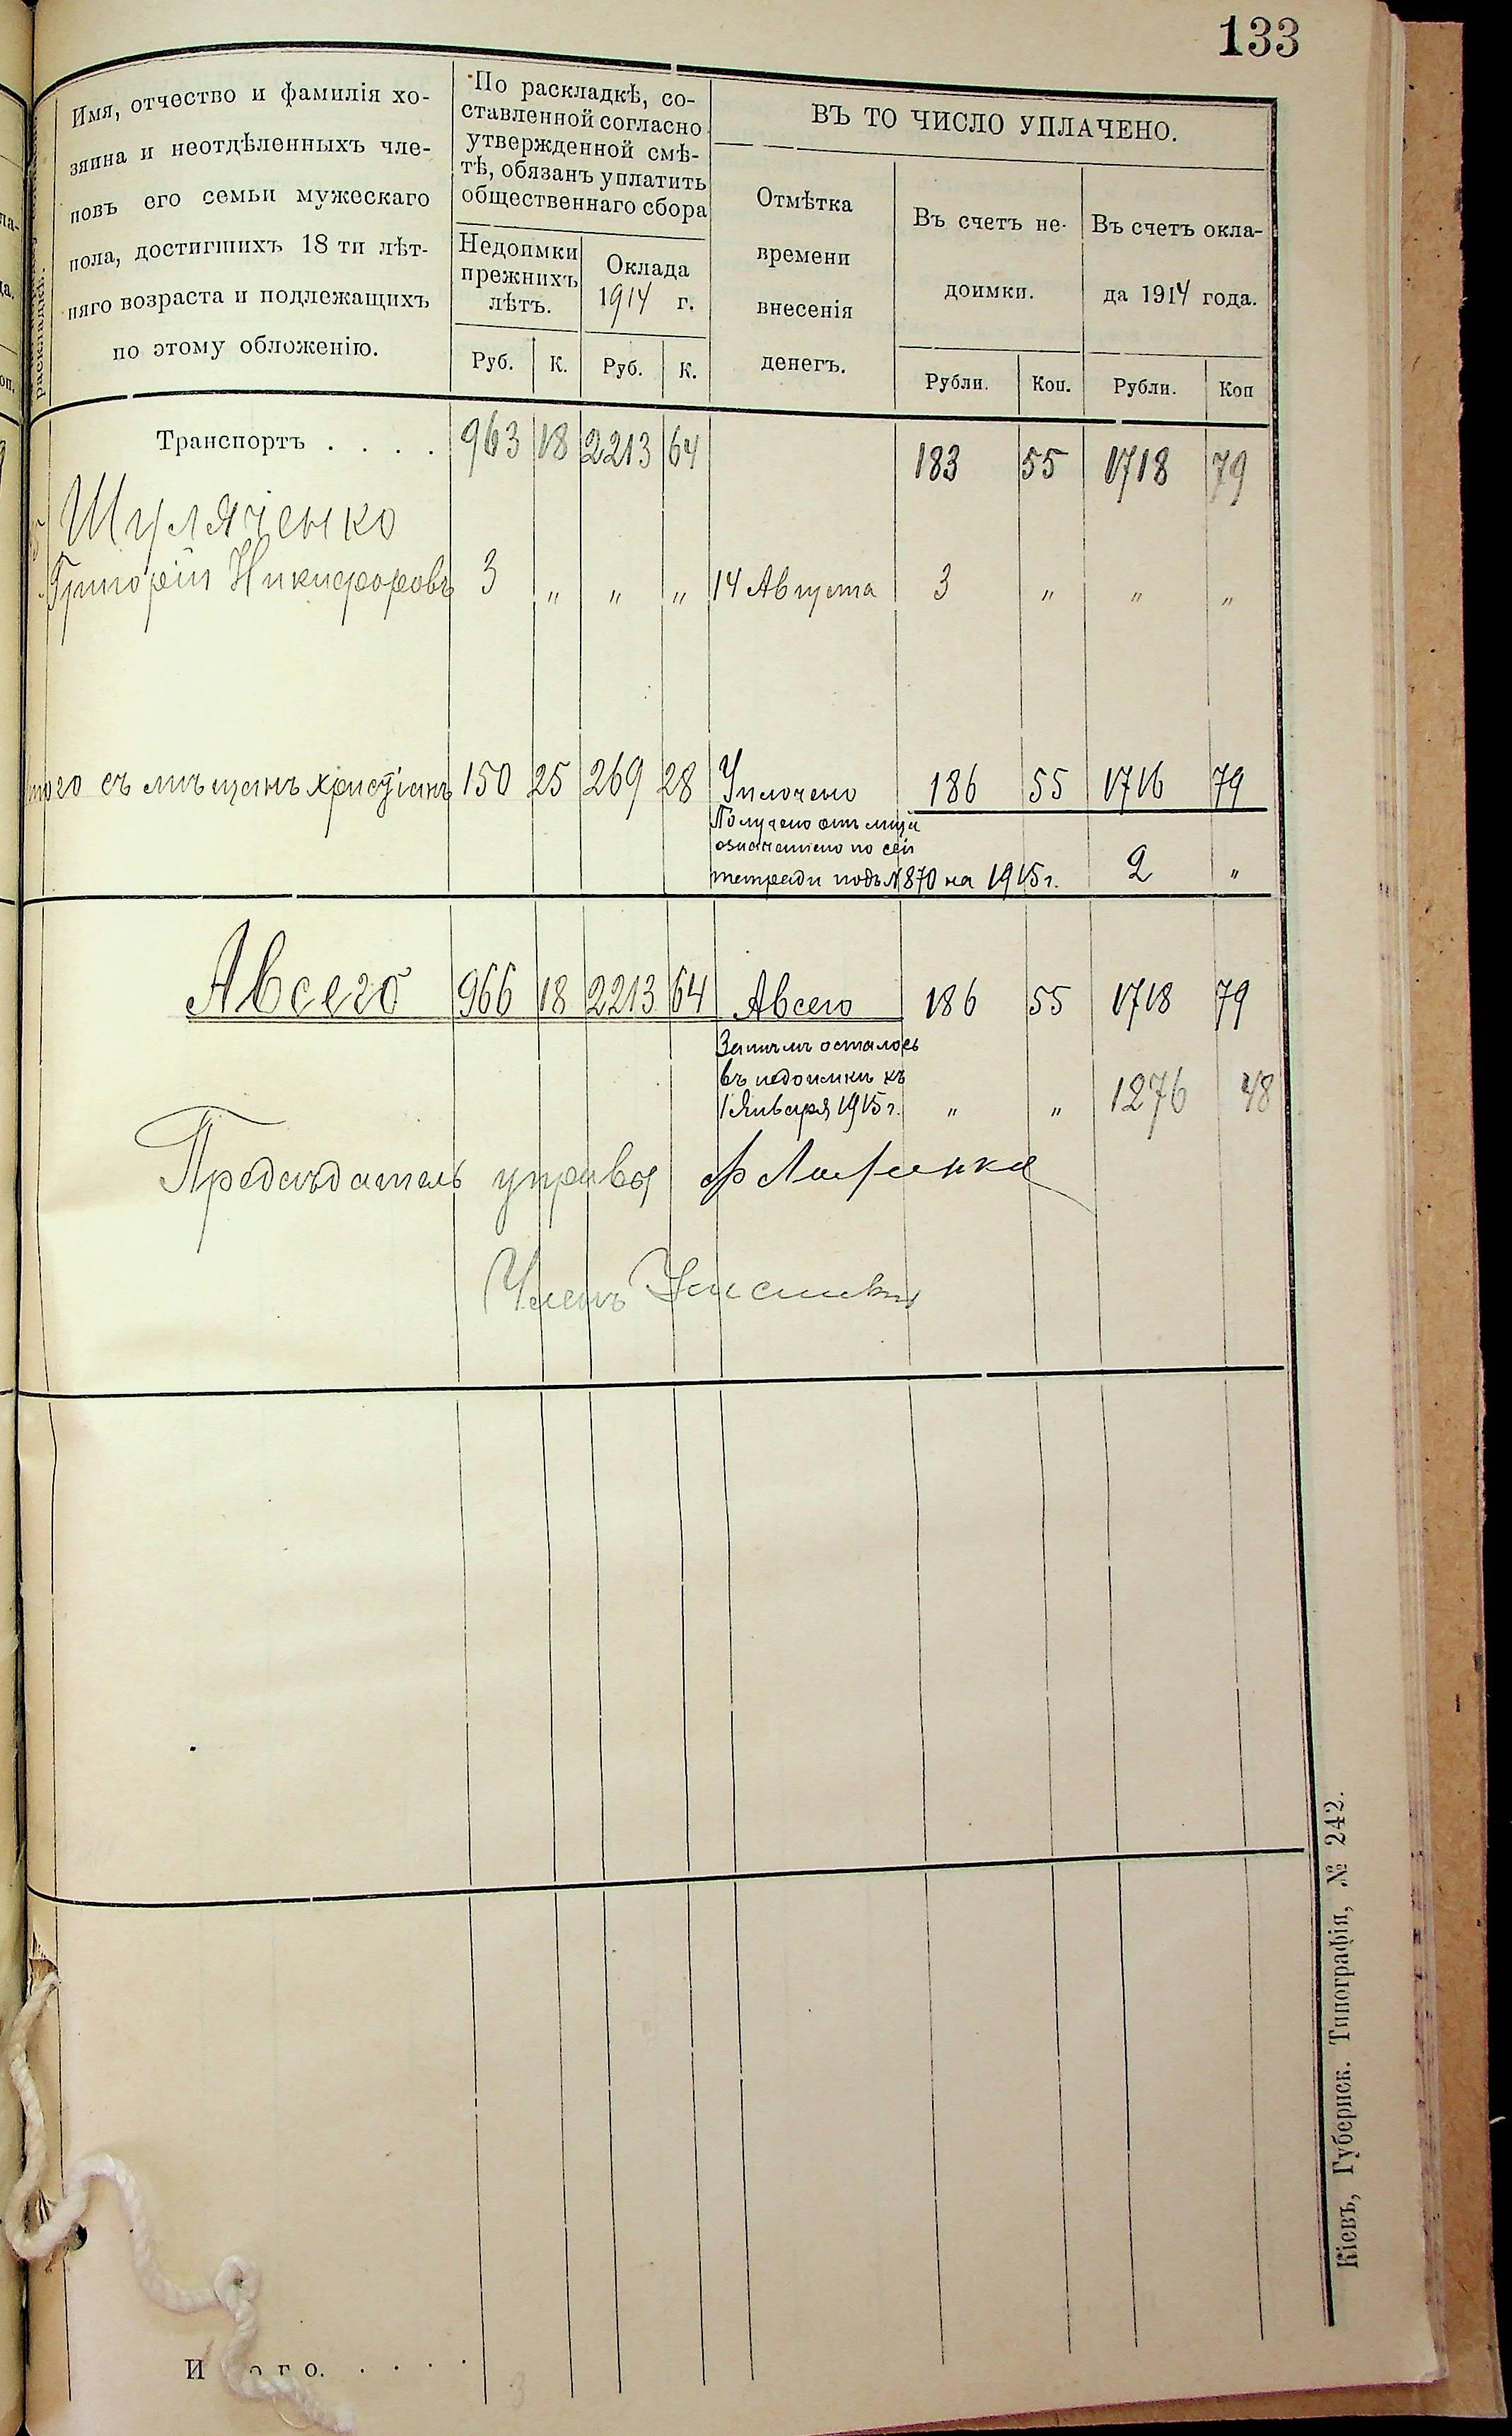 133
Имя, отчество и фамилія хо-
зяина и неотдѣленныхъ чле-
новъ его семьи мужескаго
пола, достигшихъ 18 ти лѣт-
няго возраста и подлежащихъ
по этому обложенію.
По раскладкѣ, со-
ставленной согласно
утвержденной смѣ-
тѣ, обязанъ уплатить
общественнаго сбора
Недоимки
прежнихъ
лѣтъ.
Оклада
1914 г.
Руб. К. Руб. К.
ВЪ ТО ЧИСЛО УПЛАЧЕНО.
Отмѣтка
времени
внесенія
денегъ.
Въ счетъ не-
доимки.
Въ счетъ окла-
да 1914 года.
Рубли. Коп. Рубли. Коп
Транспортъ . . . . 963 18 2213 64 183 55 1718 79
Шуляченко
Григорій Никифоровъ 3 " " " 14 Августа 3 " " "
того съ мѣщанъ христіанъ 150 25 269 28 Уплочено 186 55 1716 79
Получено отъ лица
означеннаго по сей
тетради подъ № 870 на 1915 г. 2 "
Авсего 966 18 2213 64 Авсего 186 55 1718 79
Затѣмъ осталось
въ недоимкѣ къ
1 Января 1915 г. " " 1276 48
Предсѣдатель управы
Членъ
И о г о. . . . .
Кіевъ, Губернск. Типографія, № 242.